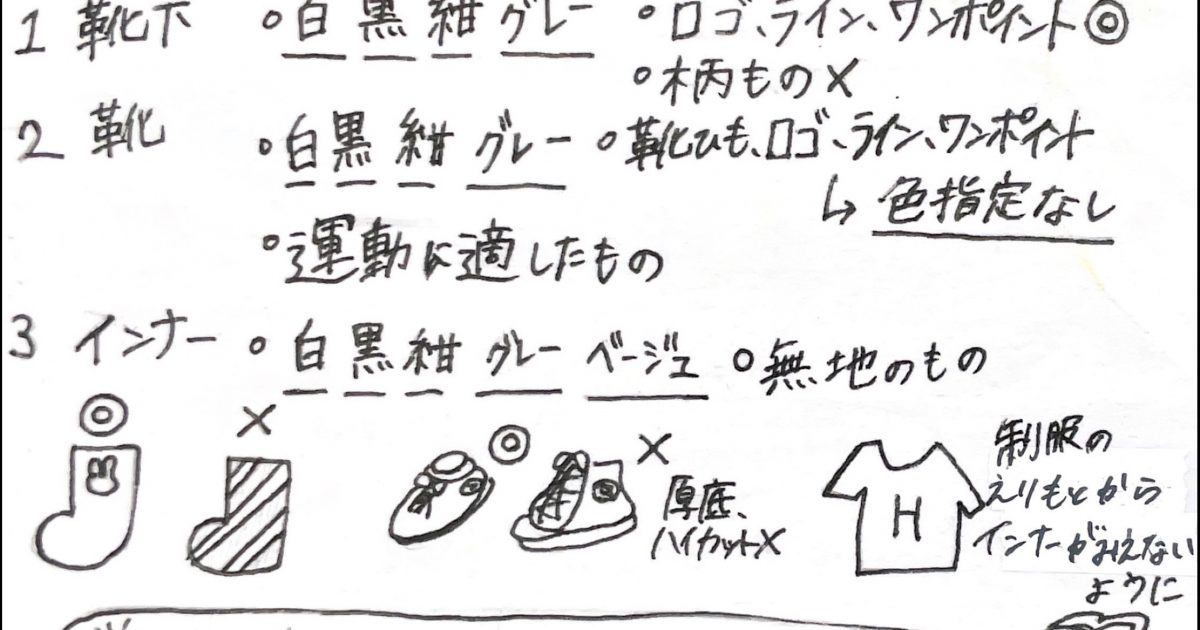 1 靴下 ○白 黒 紺 グレー ○ロゴ、ライン、ワンポイント◎
○柄もの×
2 靴 ○白 黒 紺 グレー ○靴ひも、ロゴ、ライン、ワンポイント
↳ 色指定なし
○運動に適したもの
3 インナー ○白 黒 紺 グレー ベージュ ○無地のもの
◎ × ◎ ×
厚底、
ハイカット×
H
制服の
えりもとから
インナーがみえない
ように